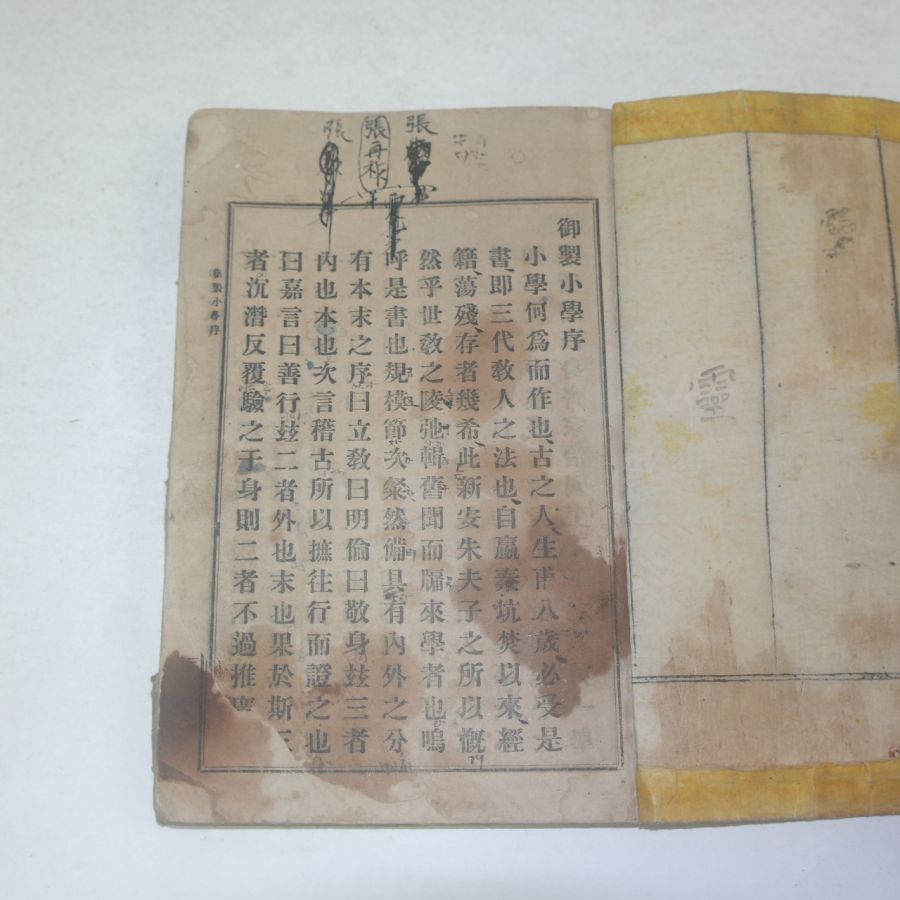 張
張再祿
張
御製小學序
小學何爲而作也古之人生甫八歲必受是
書卽三代敎人之法也自嬴秦坑焚以來經
籍蕩殘存者幾希此新安朱夫子之所以慨
然乎世敎之陵弛輯舊聞而牖來學者也嗚
呼是書也規模節次粲然備具有內外之分
有本末之序曰立敎曰明倫曰敬身玆三者
內也本也次言稽古所以摭往行而證之也
曰嘉言曰善行玆二者外也末也果於斯三
者沉潛反覆驗之于身則二者不過推廣
御製小學序
靈
靈